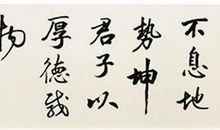 不息地
勢坤
君子以
厚德載
物